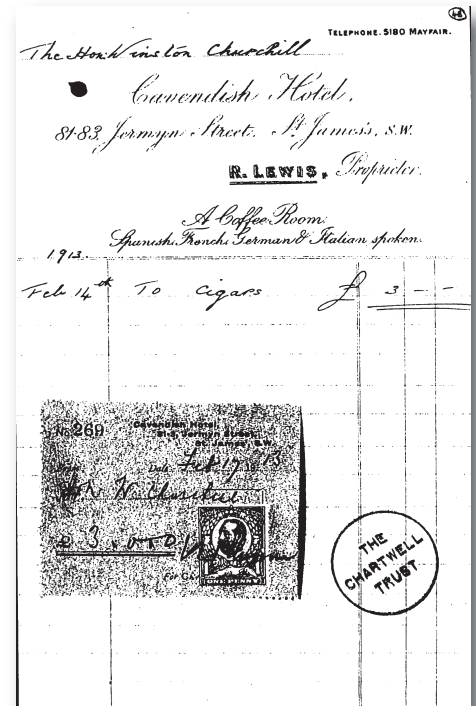 48
TELEPHONE. 5180 MAYFAIR.
The Hon: Winston Churchill
Cavendish Hotel,
81-83, Jermyn Street, St James's, S.W.
R. LEWIS, Proprietor.
A Coffee Room.
Spanish, French, German & Italian spoken.
1913.
Feb 14th To Cigars £ 3 - -
No 269
Cavendish Hotel
81-3, Jermyn Street,
St James', S.W.
Date Feb 17 1913
Hon W. Churchill
£ 3. 0 0
ONE PENNY
THE
CHARTWELL
TRUST